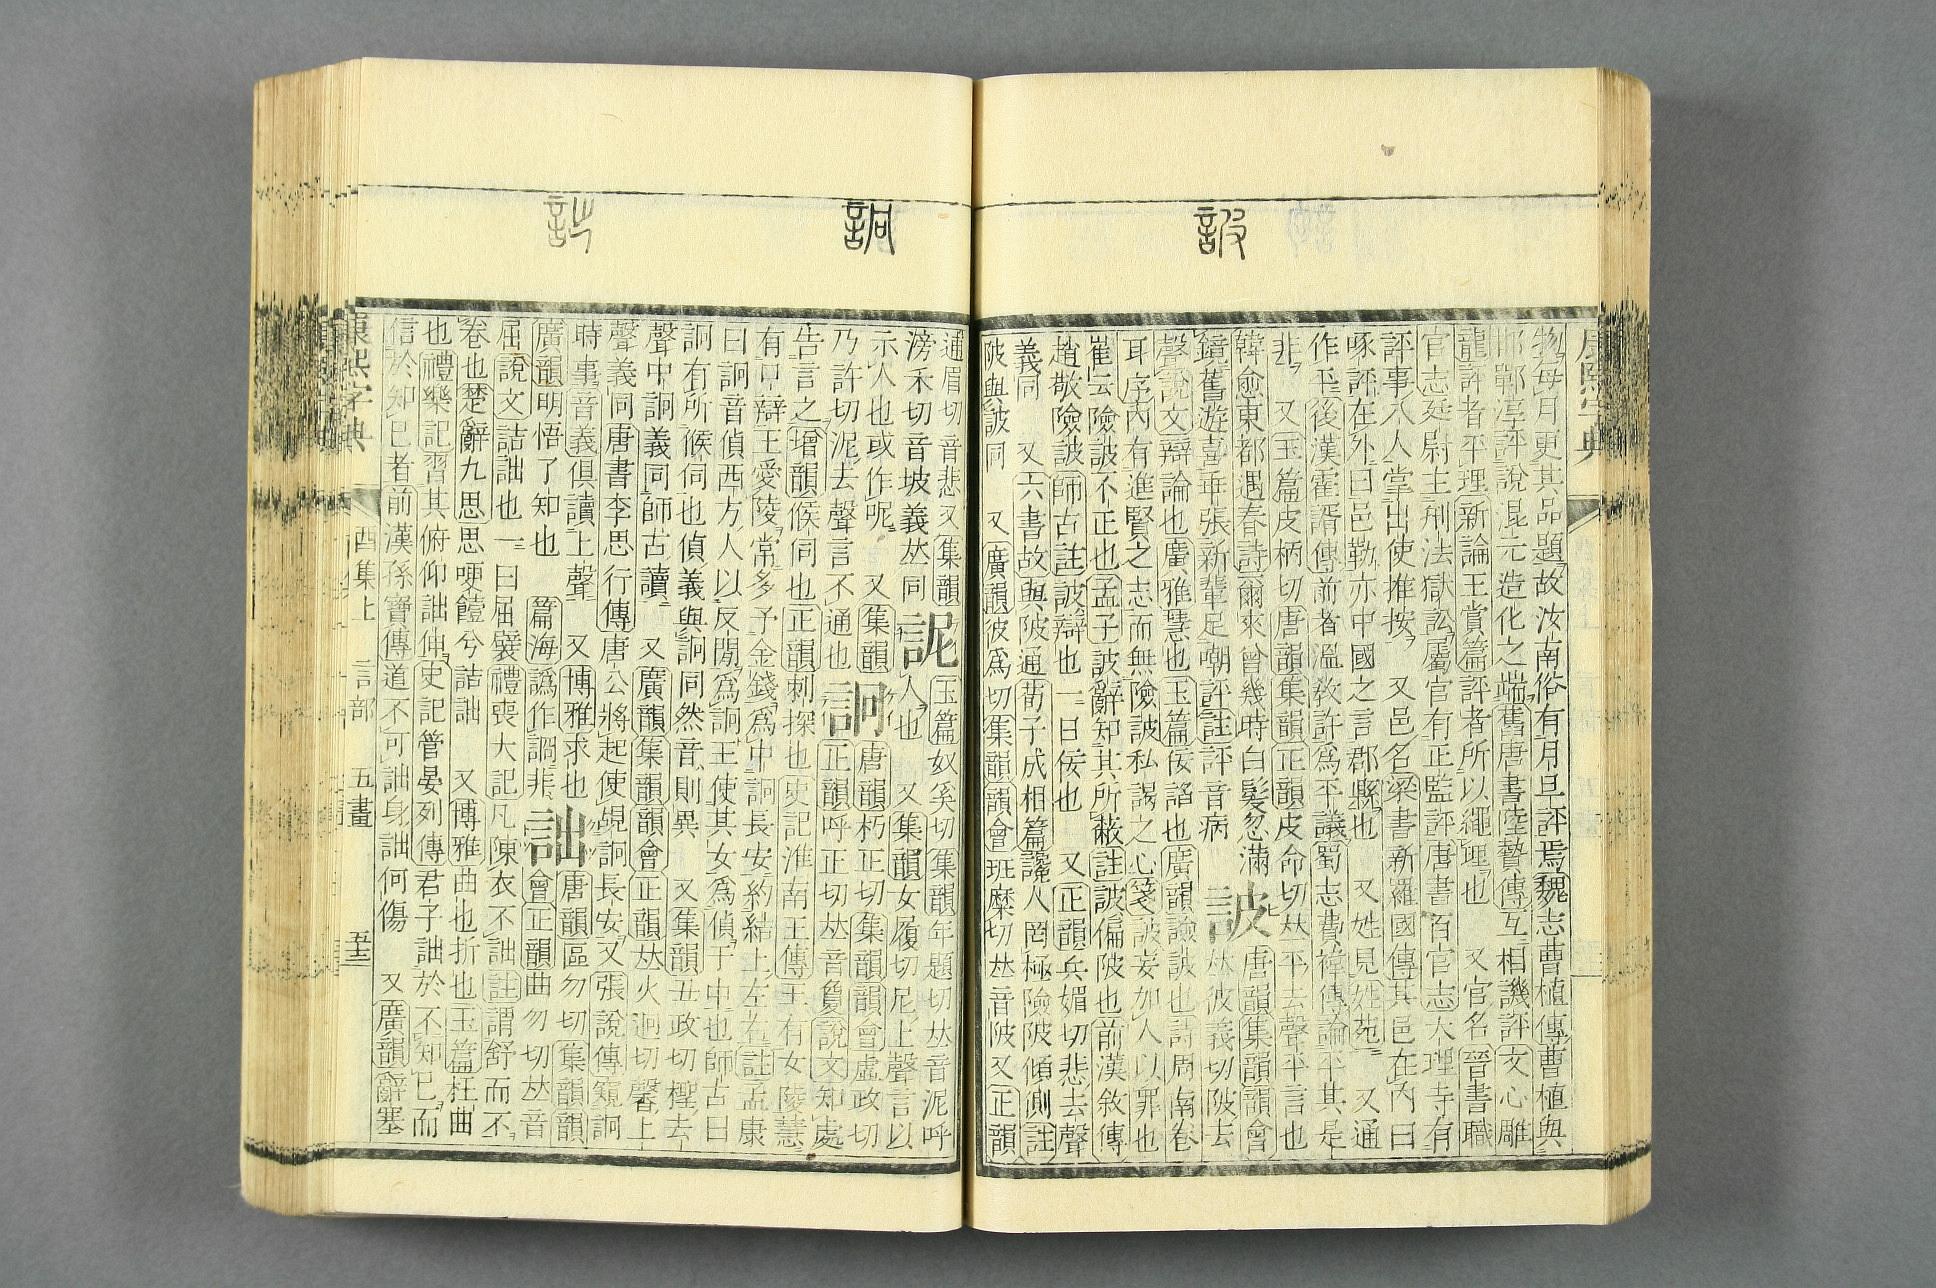 康熙字典
物每月更其品題故汝南俗有月旦評焉魏志曹植傳曹植與
邯鄲淳評說混元造化之端舊唐書陸贄傳互相譏評文心雕
龍評者平理新論王賞篇評者所以繩理也 又官名晉書職
官志廷尉主刑法獄訟屬官有正監評唐書百官志大理寺有
評事八人掌出使推按 又邑名梁書新羅國傳其邑在內曰
啄評在外曰邑勒亦中國之言郡縣也 又姓見姓苑 又通
作平後漢霍諝傳前者溫敎許爲平議蜀志費禕傳論平其是
非 又玉篇皮柄切唐韻集韻正韻皮命切𠀤平去聲平言也
韓愈東都遇春詩爾來曾幾時白髮忽滿
鏡舊遊喜乖張新輩足嘲評註評音病
詖
唐韻集韻韻會
𠀤彼義切陂去
聲說文辯論也廣雅慧也玉篇佞諂也廣韻譣詖也詩周南卷
耳序內有進賢之志而無險詖私謁之心箋詖妄加人以罪也
崔云險詖不正也孟子詖辭知其所蔽註詖偏陂也前漢敘傳
趙敬險詖師古註詖辯也一曰佞也 又正韻兵媚切悲去聲
義同 又六書故與陂通荀子成相篇讒人罔極險陂傾側註
陂與詖同 又廣韻彼爲切集韻韻會班糜切𠀤音陂又正韻
逋眉切音悲又集韻
滂禾切音坡義𠀤同
詆
玉篇奴奚切集韻年題切𠀤音泥呼
人也 又集韻女履切尼上聲言以
示人也或作呢 又集韻
乃許切泥去聲言不通也
詗
唐韻朽正切集韻韻會虛政切
正韻呼正切𠀤音敻說文知處
告言之增韻候伺也正韻刺探也史記淮南王傳王有女陵慧
有口辯王愛陵常多予金錢爲中詗長安約結上左右註孟康
曰詗音偵西方人以反閒爲詗王使其女爲偵于中也師古曰
詗有所候伺也偵義與詗同然音則異 又集韻丑政切檉去
聲中詗義同師古讀 又廣韻集韻韻會正韻𠀤火迥切馨上
聲義同唐書李思行傳唐公將起使覘詗長安又張說傳窺詗
時事音義俱讀上聲 又博雅求也
廣韻明悟了知也 篇海譌作調非
詘
唐韻區勿切集韻韻
會正韻曲勿切𠀤音
屈說文詰詘也一曰屈襞禮喪大記凡陳衣不詘註謂舒而不
卷也楚辭九思思哽饐兮詰詘 又博雅曲也折也玉篇枉曲
也禮樂記習其俯仰詘伸史記管晏列傳君子詘於不知已而
信於知已者前漢孫寶傳道不可詘身詘何傷 又廣韻辭塞
康熙字典
酉集上 言部 五畫